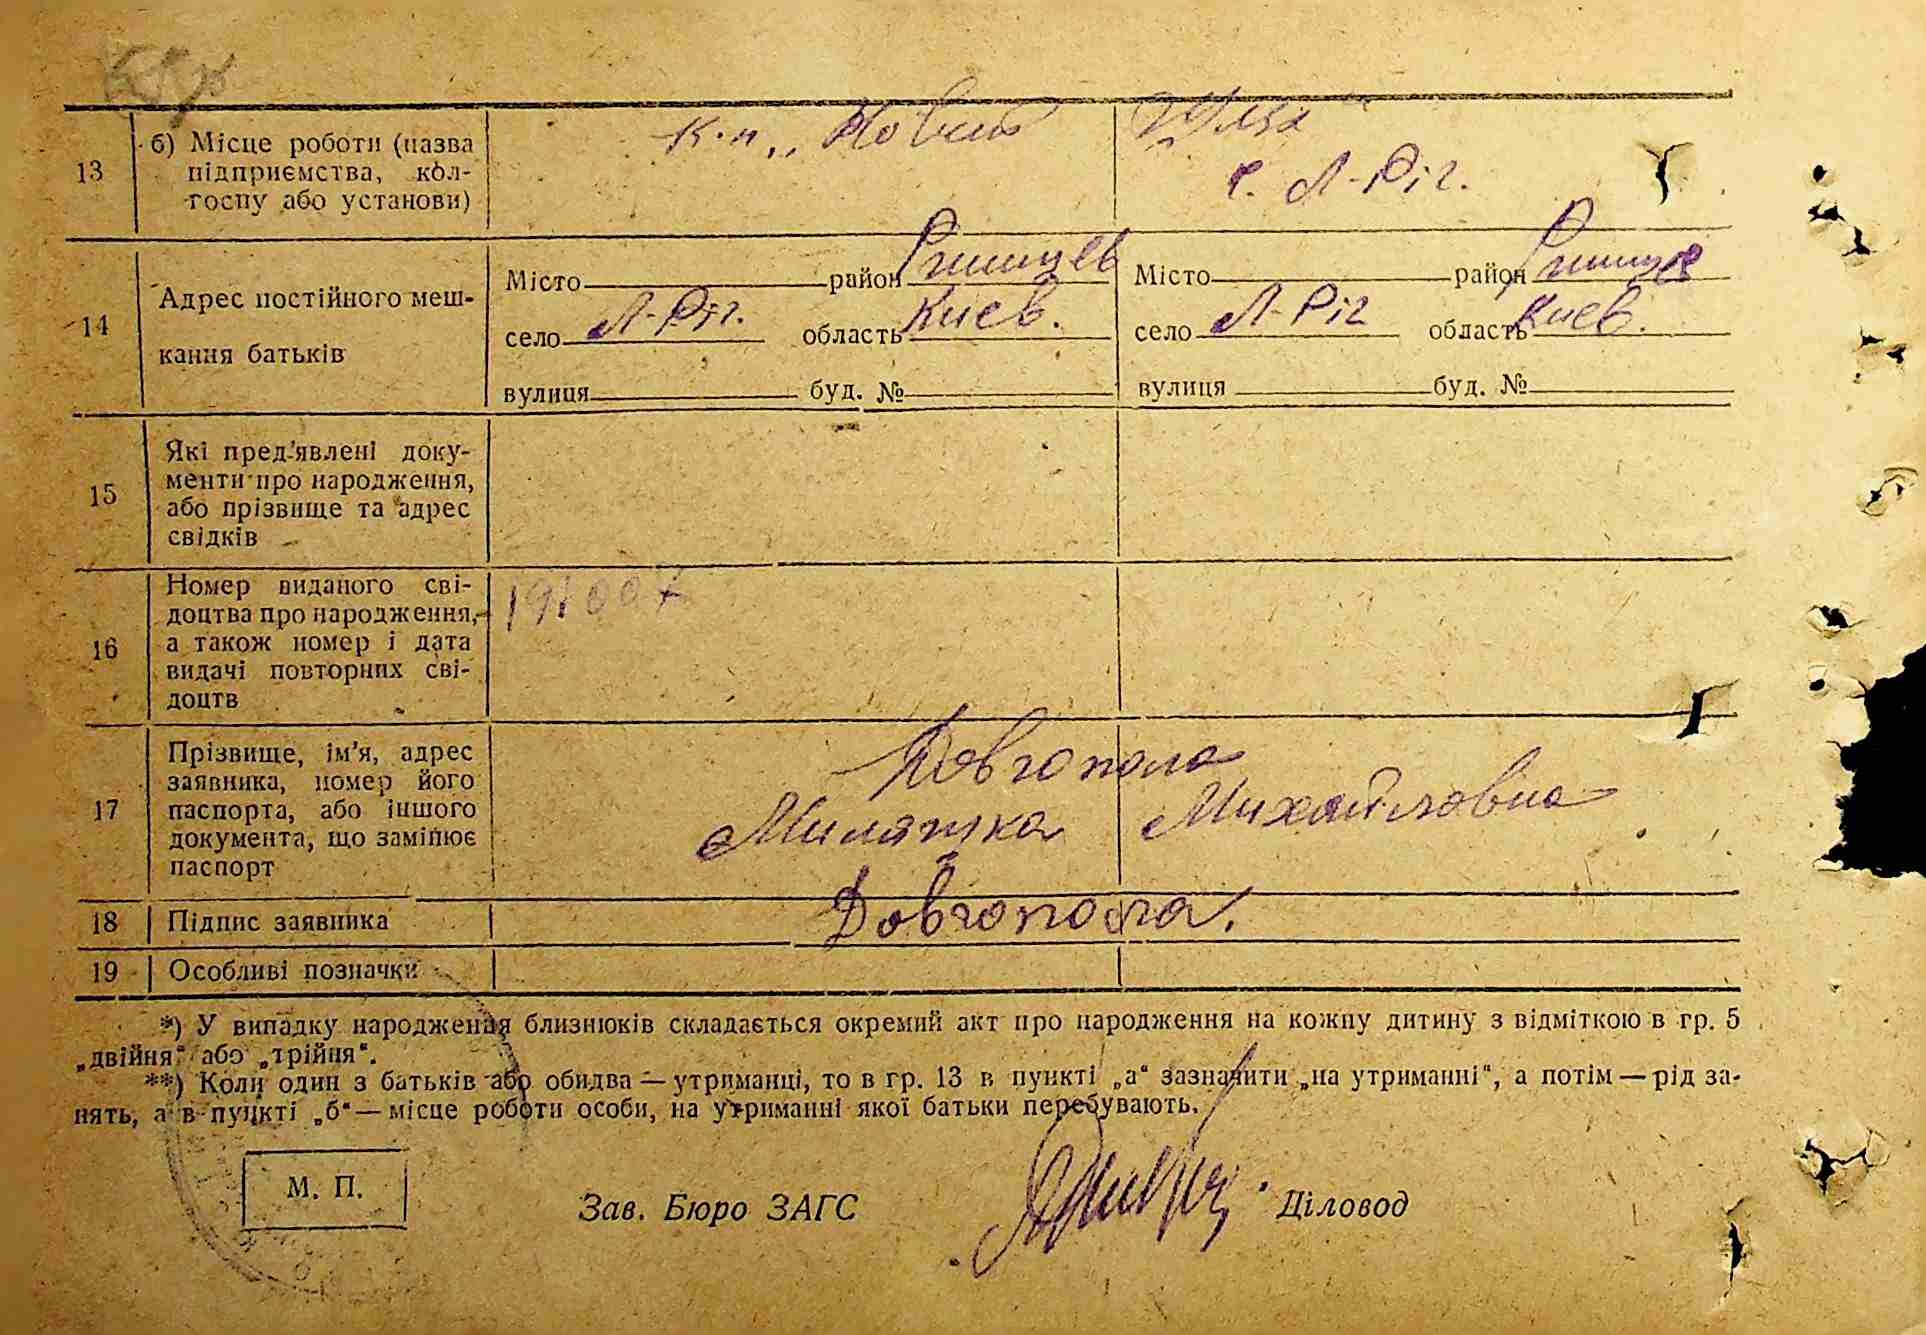 13 б) Місце роботи (назва підприємства, колгоспу або установи)
к-п „ Новий Шлях
с. Л-Ріг.
14 Адрес постійного мешкання батьків
Місто район Ржищев Місто район Ржищев
село Л-Ріг. область Киев. село Л-Ріг область Киев.
вулиця буд. № вулиця буд. №
15 Які пред'явлені документи про народження, або прізвище та адрес свідків
16 Номер виданого свідоцтва про народження, а також номер і дата видачі повторних свідоцтв
17 Прізвище, ім'я, адрес заявника, номер його паспорта, або іншого документа, що замінює паспорт
Довгопола
Миляшка Михайловна
18 Підпис заявника Довгопола.
19 Особливі позначки
*) У випадку народження близнюків складається окремий акт про народження на кожну дитину з відміткою в гр. 5
„двійня“ або „трійня“.
**) Коли один з батьків або обидва — утриманці, то в гр. 13 в пункті „а“ зазначити „на утриманні“, а потім — рід за-
нять, а в пункті „б“ — місце роботи особи, на утриманні якої батьки перебувають.
М. П.
Зав. Бюро ЗАГС Діловод